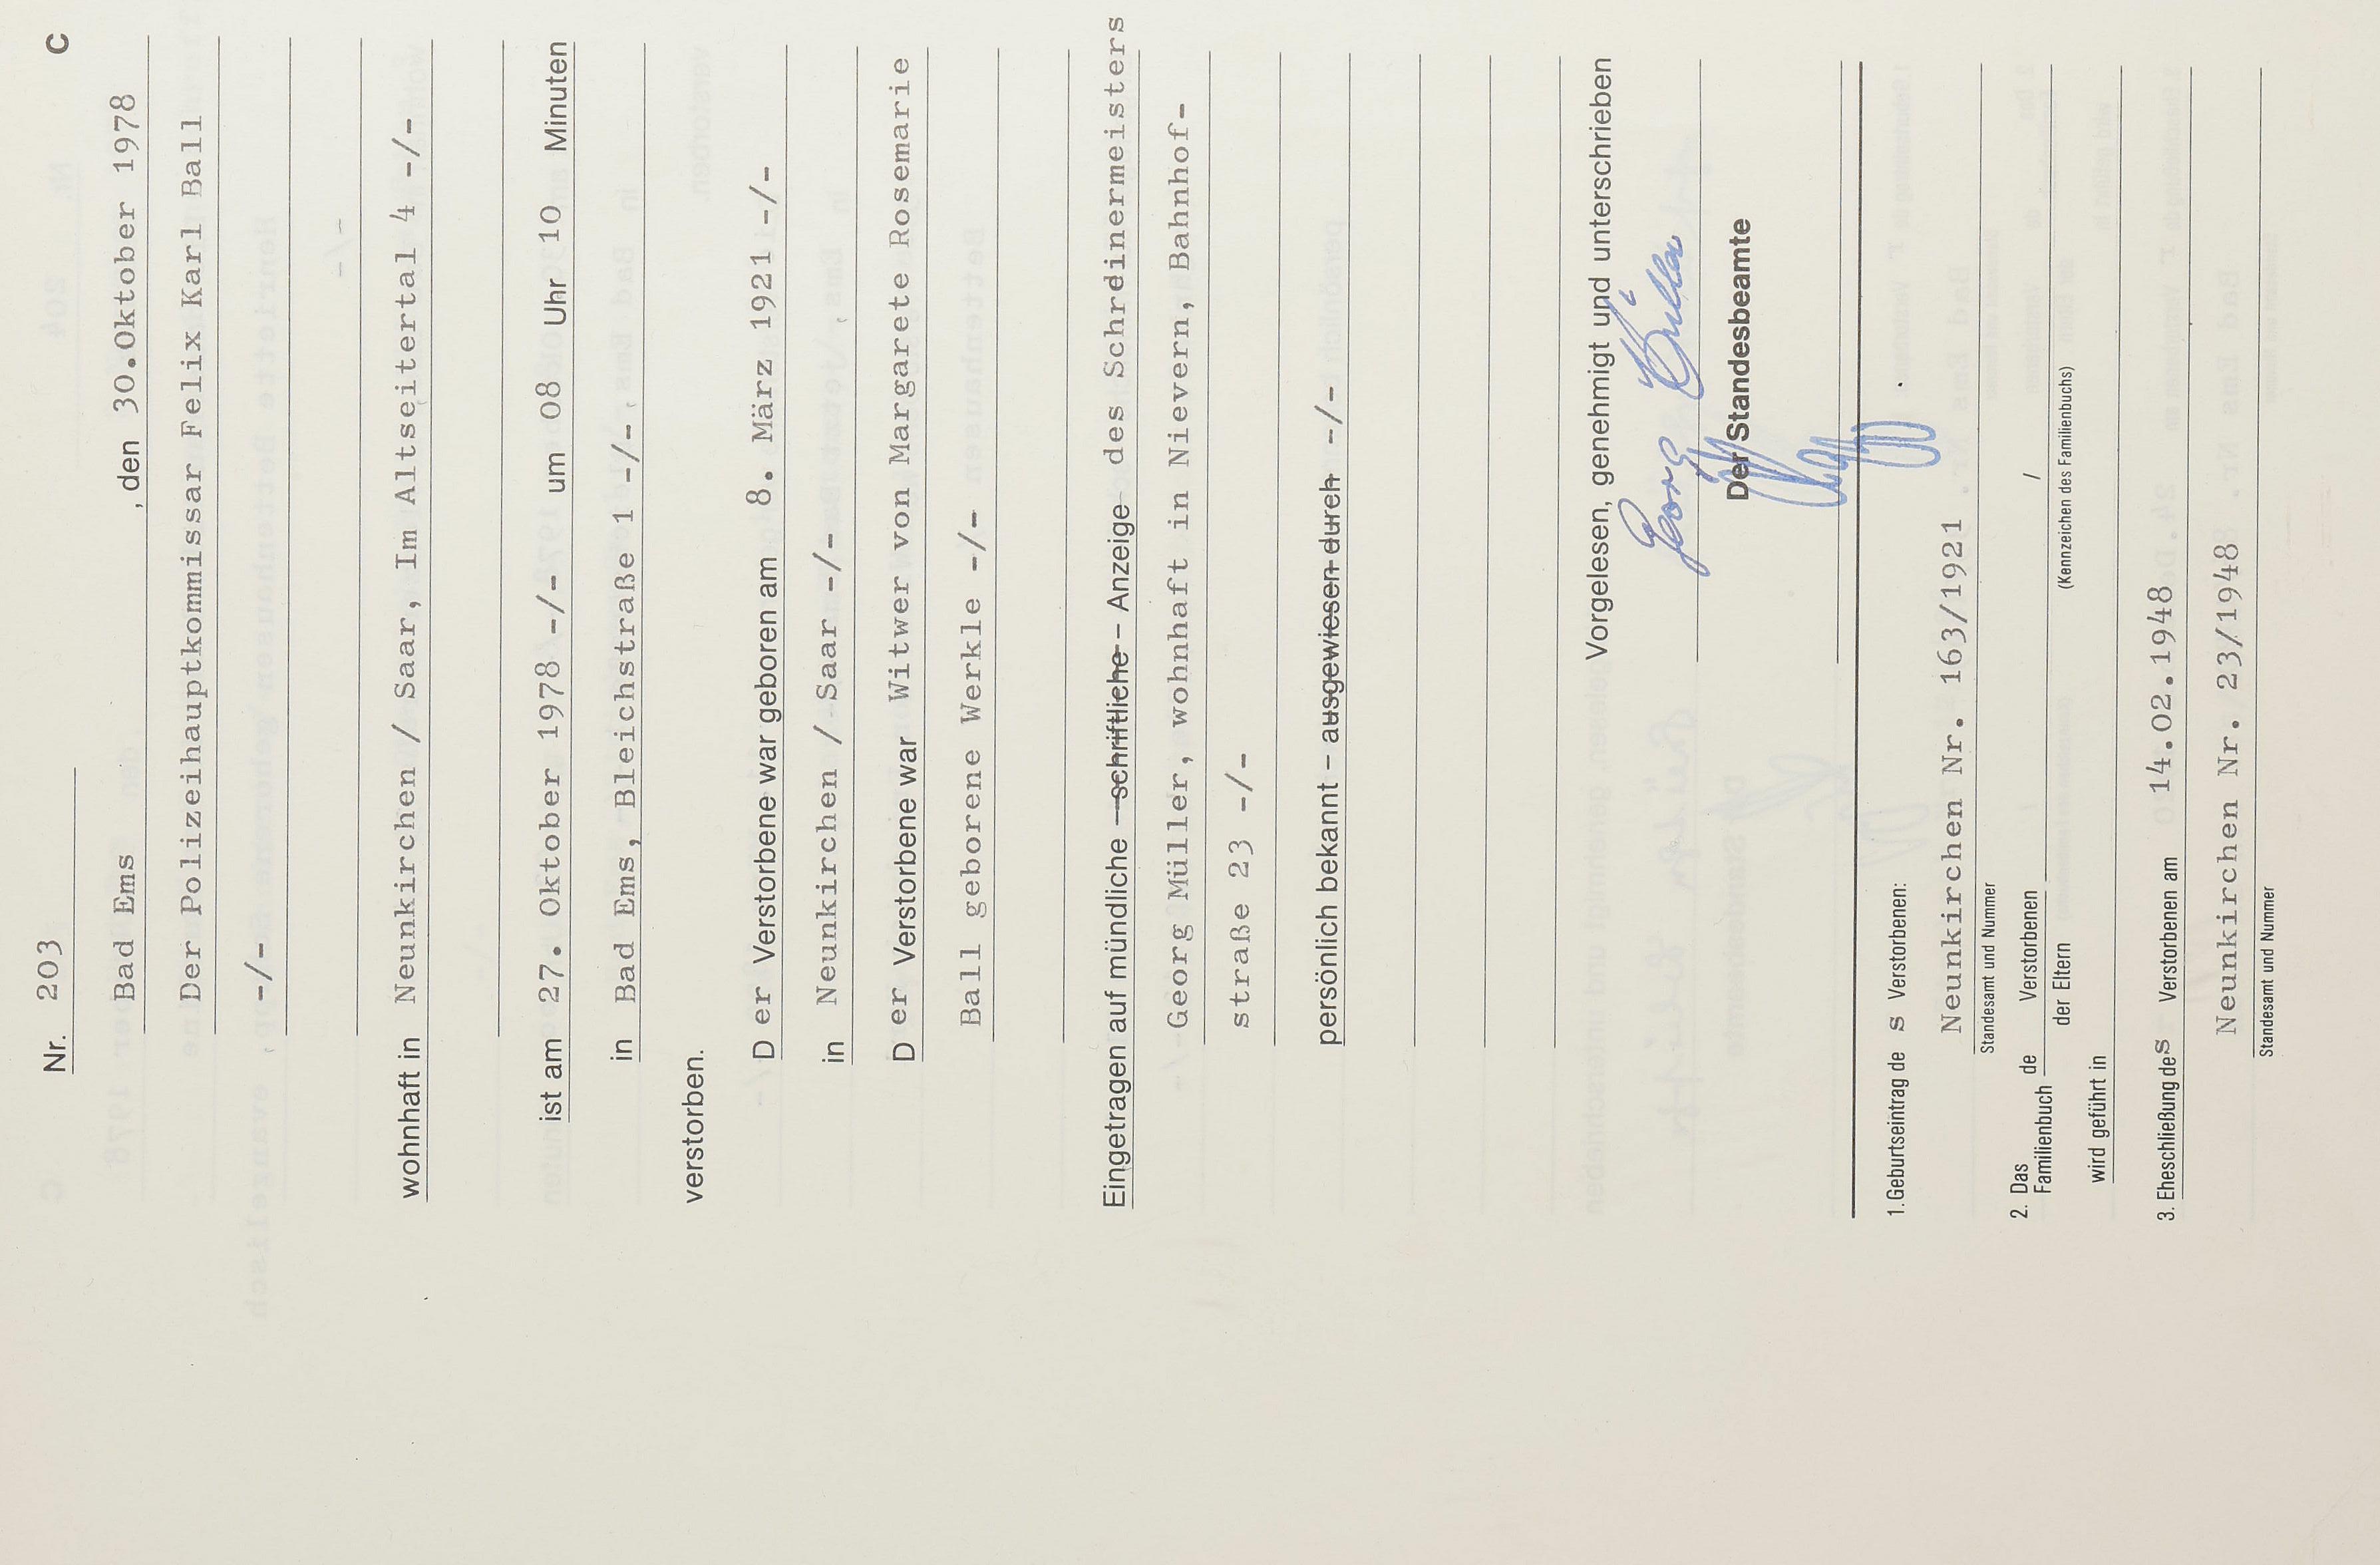 Nr. 203 C
Bad Ems , den 30.Oktober 1978
Der Polizeihauptkommissar Felix Karl Ball
-/-
wohnhaft in Neunkirchen / Saar, Im Altseitertal 4 -/-
ist am 27. Oktober 1978 -/- um 08 Uhr 10 Minuten
in Bad Ems, Bleichstraße 1 -/-
verstorben.
D er Verstorbene war geboren am 8. März 1921 -/-
in Neunkirchen / Saar -/-
D er Verstorbene war Witwer von Margarete Rosemarie
Ball geborene Werkle -/-
Eingetragen auf mündliche – schriftliche – Anzeige des Schreinermeisters
Georg Müller, wohnhaft in Nievern, Bahnhof-
straße 23 -/-
persönlich bekannt – ausgewiesen durch -/-
Vorgelesen, genehmigt und unterschrieben
Georg Müller
Der Standesbeamte
1. Geburtseintrag de s Verstorbenen:
Neunkirchen Nr. 163/1921
Standesamt und Nummer
2. Das Familienbuch de Verstorbenen /
der Eltern (Kennzeichen des Familienbuchs)
wird geführt in
3. Eheschließung des Verstorbenen am 14.02.1948
Neunkirchen Nr. 23/1948
Standesamt und Nummer